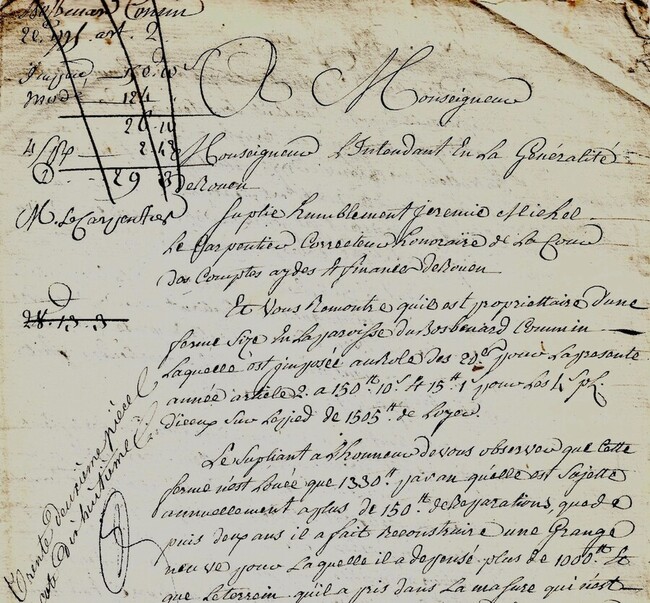 Bosbenard Comin
20.es 1791 art. 2
150.10
124
26.10
2.13
4 s/p
29 3
M. Le Carpentier
28.13.3
Trente deuxième pièce
cote dix huitième
A Monseigneur
Monseigneur L'Intendant En La Généralité
de Rouen
Suplie humblement Jeremie Michel
Le Carpentier Correcteur honoraire de La Cour
des Comptes aydes & finances de Rouen
Et Vous Remontre qu'il est propriettaire d'une
ferme Size En La paroisse du Bosbenard Commin
Laquelle est jmposée au Role des 20.es pour La presente
année article 2. a 150.tt 10.s & 15.tt 1.s pour Les 4 s/pl.
d'jceux Sur Le pied de 1505.tt de Loyer.
Le Supliant a L'honneur de vous observer que Cette
ferme n'est Louée que 1330.tt par an qu'elle est Sujette
annuellement a plus de 150.tt de Reparations, que de
puis deux ans il a fait Reconstruire une Grange
neuve pour Laquelle il a depensé plus de 1000.tt Et
que Le terrein qu'il a pris dans La masure qui n'est